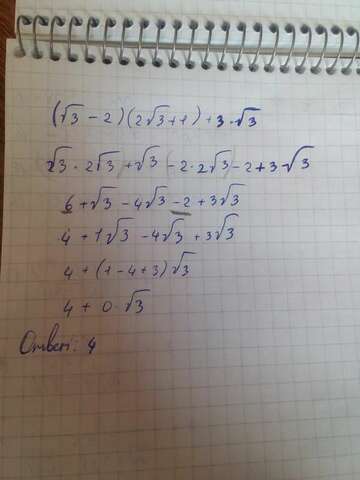 (√3 - 2)(2√3+1) + 3·√3
√3 · 2√3 + √3 - 2·2√3 - 2 + 3·√3
6 + √3 - 4√3 - 2 + 3√3
4 + 1√3 - 4√3 + 3√3
4 + (1 - 4 + 3)√3
4 + 0·√3
Ответ: 4